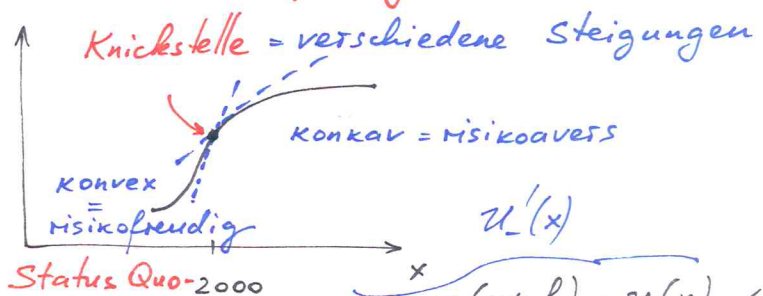 Knickstelle = verschiedene Steigungen
konkav = risikoavers
konvex
=
risikofreudig
U'_(x)
x
Status Quo-2000